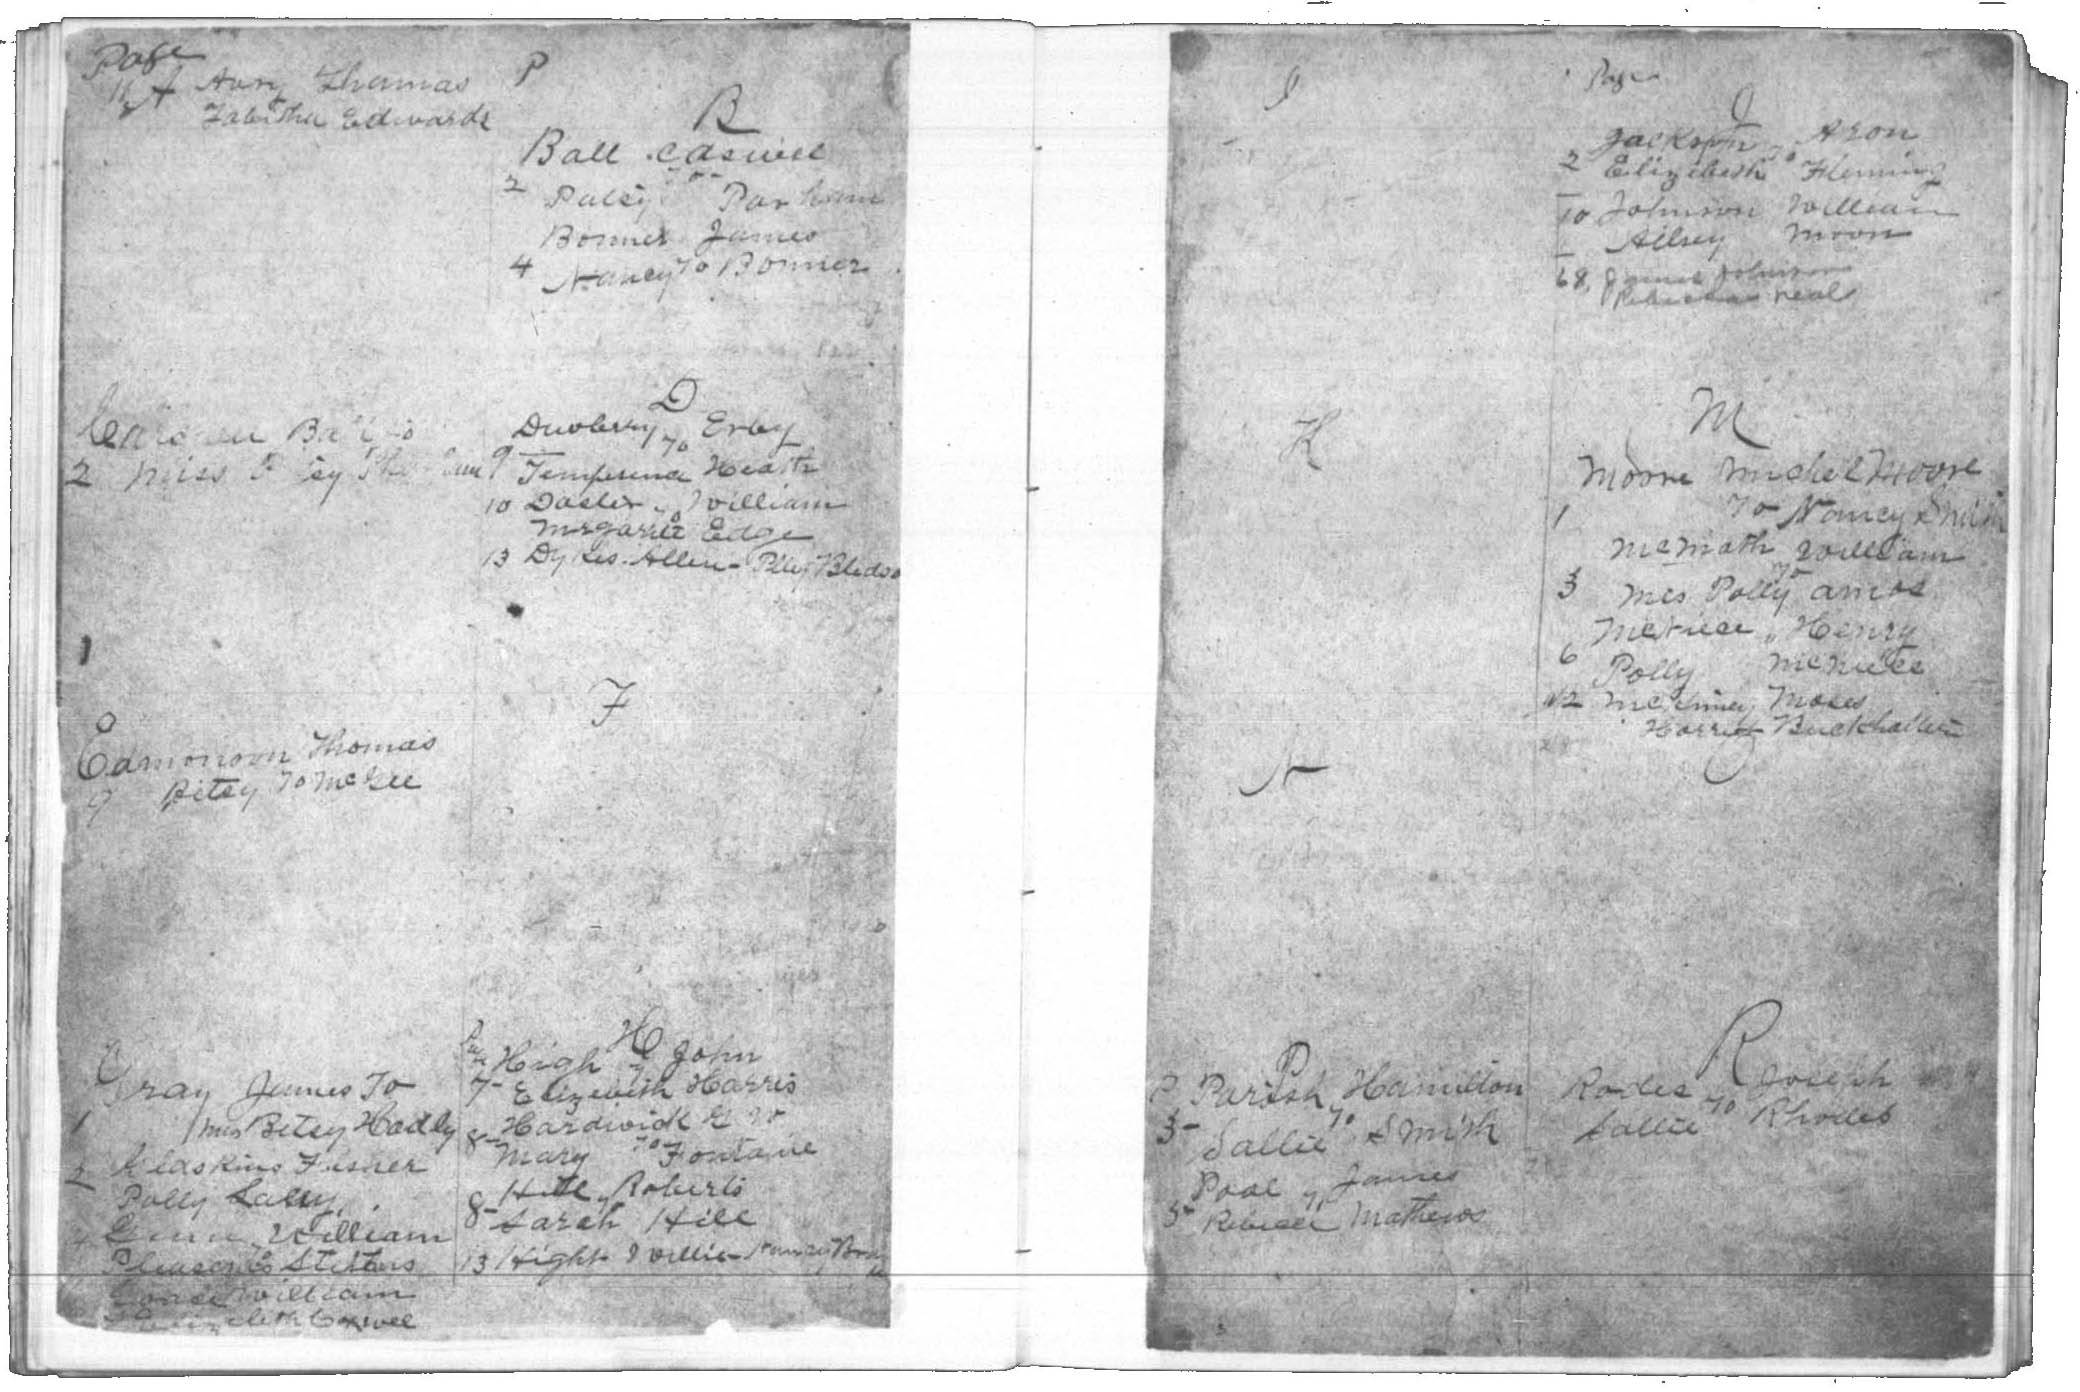 Page
A Avry Thomas
Tabitha Edwards
P
B
Ball Caswell
2 Patsy to Parham
Bonner James
4 Nancy To Bonner
2 Miss
D
Duvberry To Erby
9 Temperence Heath
10 Daster William
Mrgarret Edge
13 Dykes Allen - Bledso
1
F
Edmonson Thomas
9 Betsy To McKee
Gray James To
1 Mrs Betsy Hadly
2 Gaskins Fisher
Polly Lasly
4 William
Pleasent Stiters
William
Elizebeth Coxwell
H
High John
7 Elizebeth Harris
Hardwick
8 Mary To Fontaine
Hill Roberts
8 Sarah Hill
13 Hight Willie - Nancy
I
Page
J
Jackson Aron
2 Elizebeth To Fleming
10 Johnson William
Ailsey Moon
68 James Johnson
Rebecca Neal
K
M
Moore Michel Moore
1 To Nancy Smith
McMath William
3 Mrs Polly To Amos
McNiece Henry
6 Polly McNiece
12 Moses
Harriet Buckhalter
N
P
Parish Hamilton
3 Sallie To Smith
Pool James
5 Rebecca Mathews
R
Rodes Joseph
Sallie To Rhodes